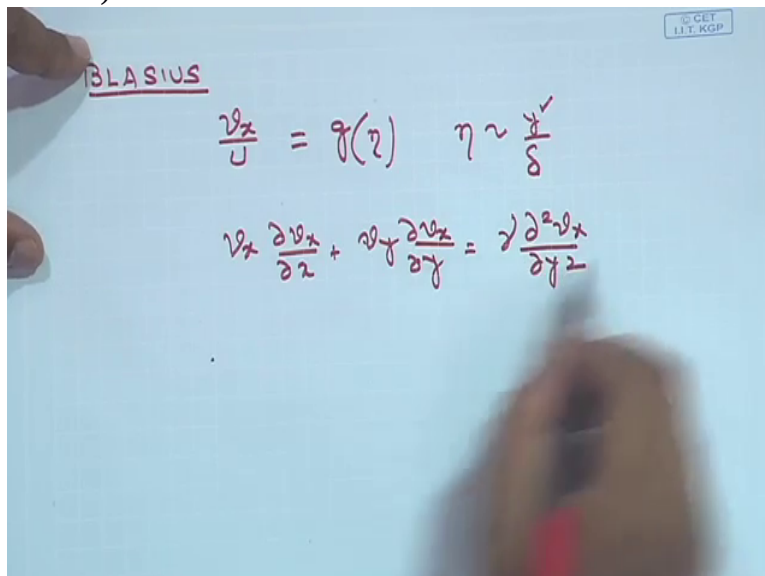 © CET
I.I.T. KGP
BLASIUS
vₓ/U = g(η)    η ~ y/δ
vₓ ∂vₓ/∂x + v_y ∂vₓ/∂y = ν ∂²vₓ/∂y²